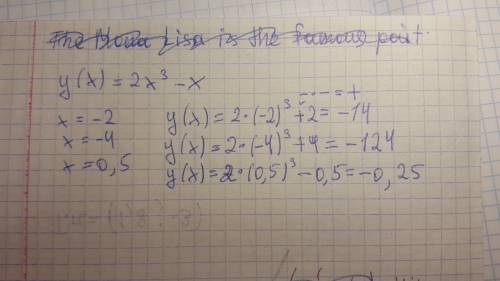 The Mona Lisa is the famous paint.
y(x) = 2x³ - x
- · - = +
x = -2 y(x) = 2·(-2)³ + 2 = -14
x = -4 y(x) = 2·(-4)³ + 4 = -124
x = 0,5 y(x) = 2·(0,5)³ - 0,5 = -0,25